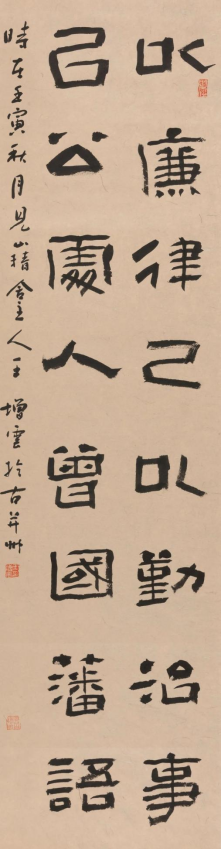 以廉律己以勤治事
以公處人曾國藩語
時在壬寅秋月見山精舍主人王增雲於古并州